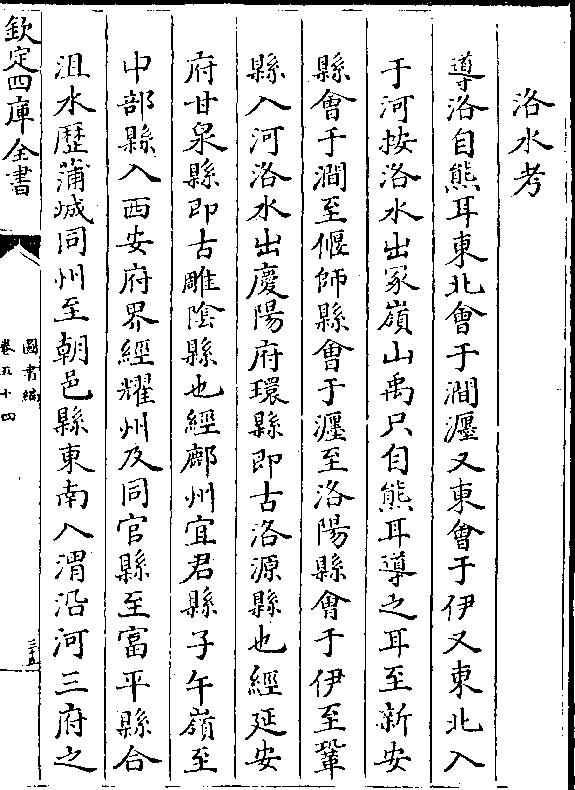 洛水考
導洛自熊耳東北會于澗瀍又東會于伊又東北入
于河按洛水出冢嶺山禹只自熊耳導之耳至新安
縣會于澗至偃師縣會于瀍至洛陽縣會于伊至鞏
縣入河洛水出慶陽府環縣即古洛源縣也經延安
府甘泉縣即古雕陰縣也經鄜州宜君縣子午嶺至
中部縣入西安府界經耀州及同官縣至富平縣合
沮水歷蒲城同州至朝邑縣東南入渭沿河三府之
欽定四庫全書
圖書編
卷五十四
三十五